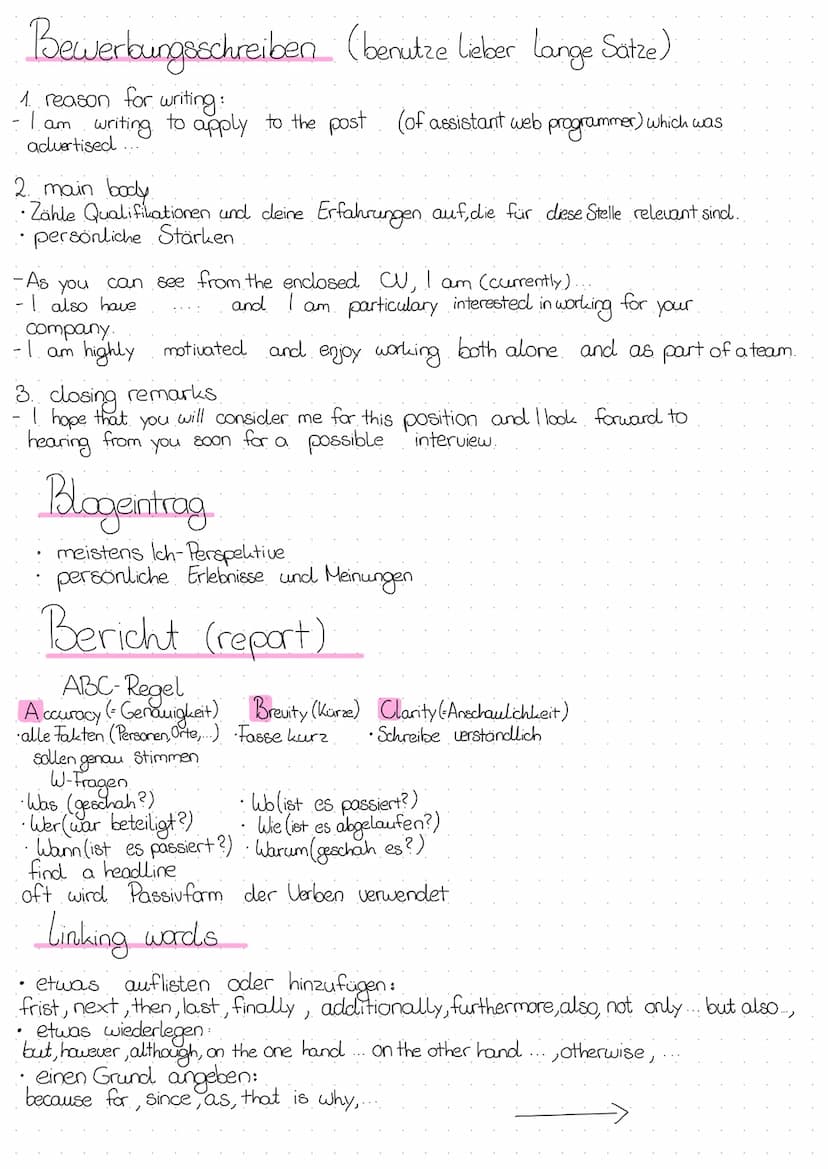 Bewerbungsschreiben (benutze lieber lange Sätze)
1. reason for writing:
- I am writing to apply to the post (of assistant web programmer) which was
advertised ...
2. main body
· Zähle Qualifikationen und deine Erfahrungen auf, die für diese Stelle relevant sind.
· persönliche Stärken
- As you can see from the enclosed CV, I am (currently)...
- I also have .... and I am particulary interested in working for your
company.
- I am highly motivated and enjoy working both alone and as part of a team.
3. closing remarks
- I hope that you will consider me for this position and I look forward to
hearing from you soon for a possible interview.
Blogeintrag
· meistens Ich-Perspektive
· persönliche Erlebnisse und Meinungen
Bericht (report)
ABC-Regel
Accuracy (= Genauigkeit) Brevity (Kürze) Clarity (= Anschaulichkeit)
· alle Fakten (Personen, Orte, ...) · Fasse kurz · Schreibe verständlich
sollen genau stimmen
W-Fragen
· Was (geschah?) · Wo (ist es passiert?)
· Wer (war beteiligt?) · Wie (ist es abgelaufen?)
· Wann (ist es passiert?) · Warum (geschah es?)
find a headline
oft wird Passivform der Verben verwendet
Linking words
· etwas auflisten oder hinzufügen:
frist, next, then, last, finally, additionally, furthermore, also, not only ... but also ...,
· etwas wiederlegen:
but, however, although, on the one hand ... on the other hand ..., otherwise, ...
· einen Grund angeben:
because for, since, as, that is why, ...